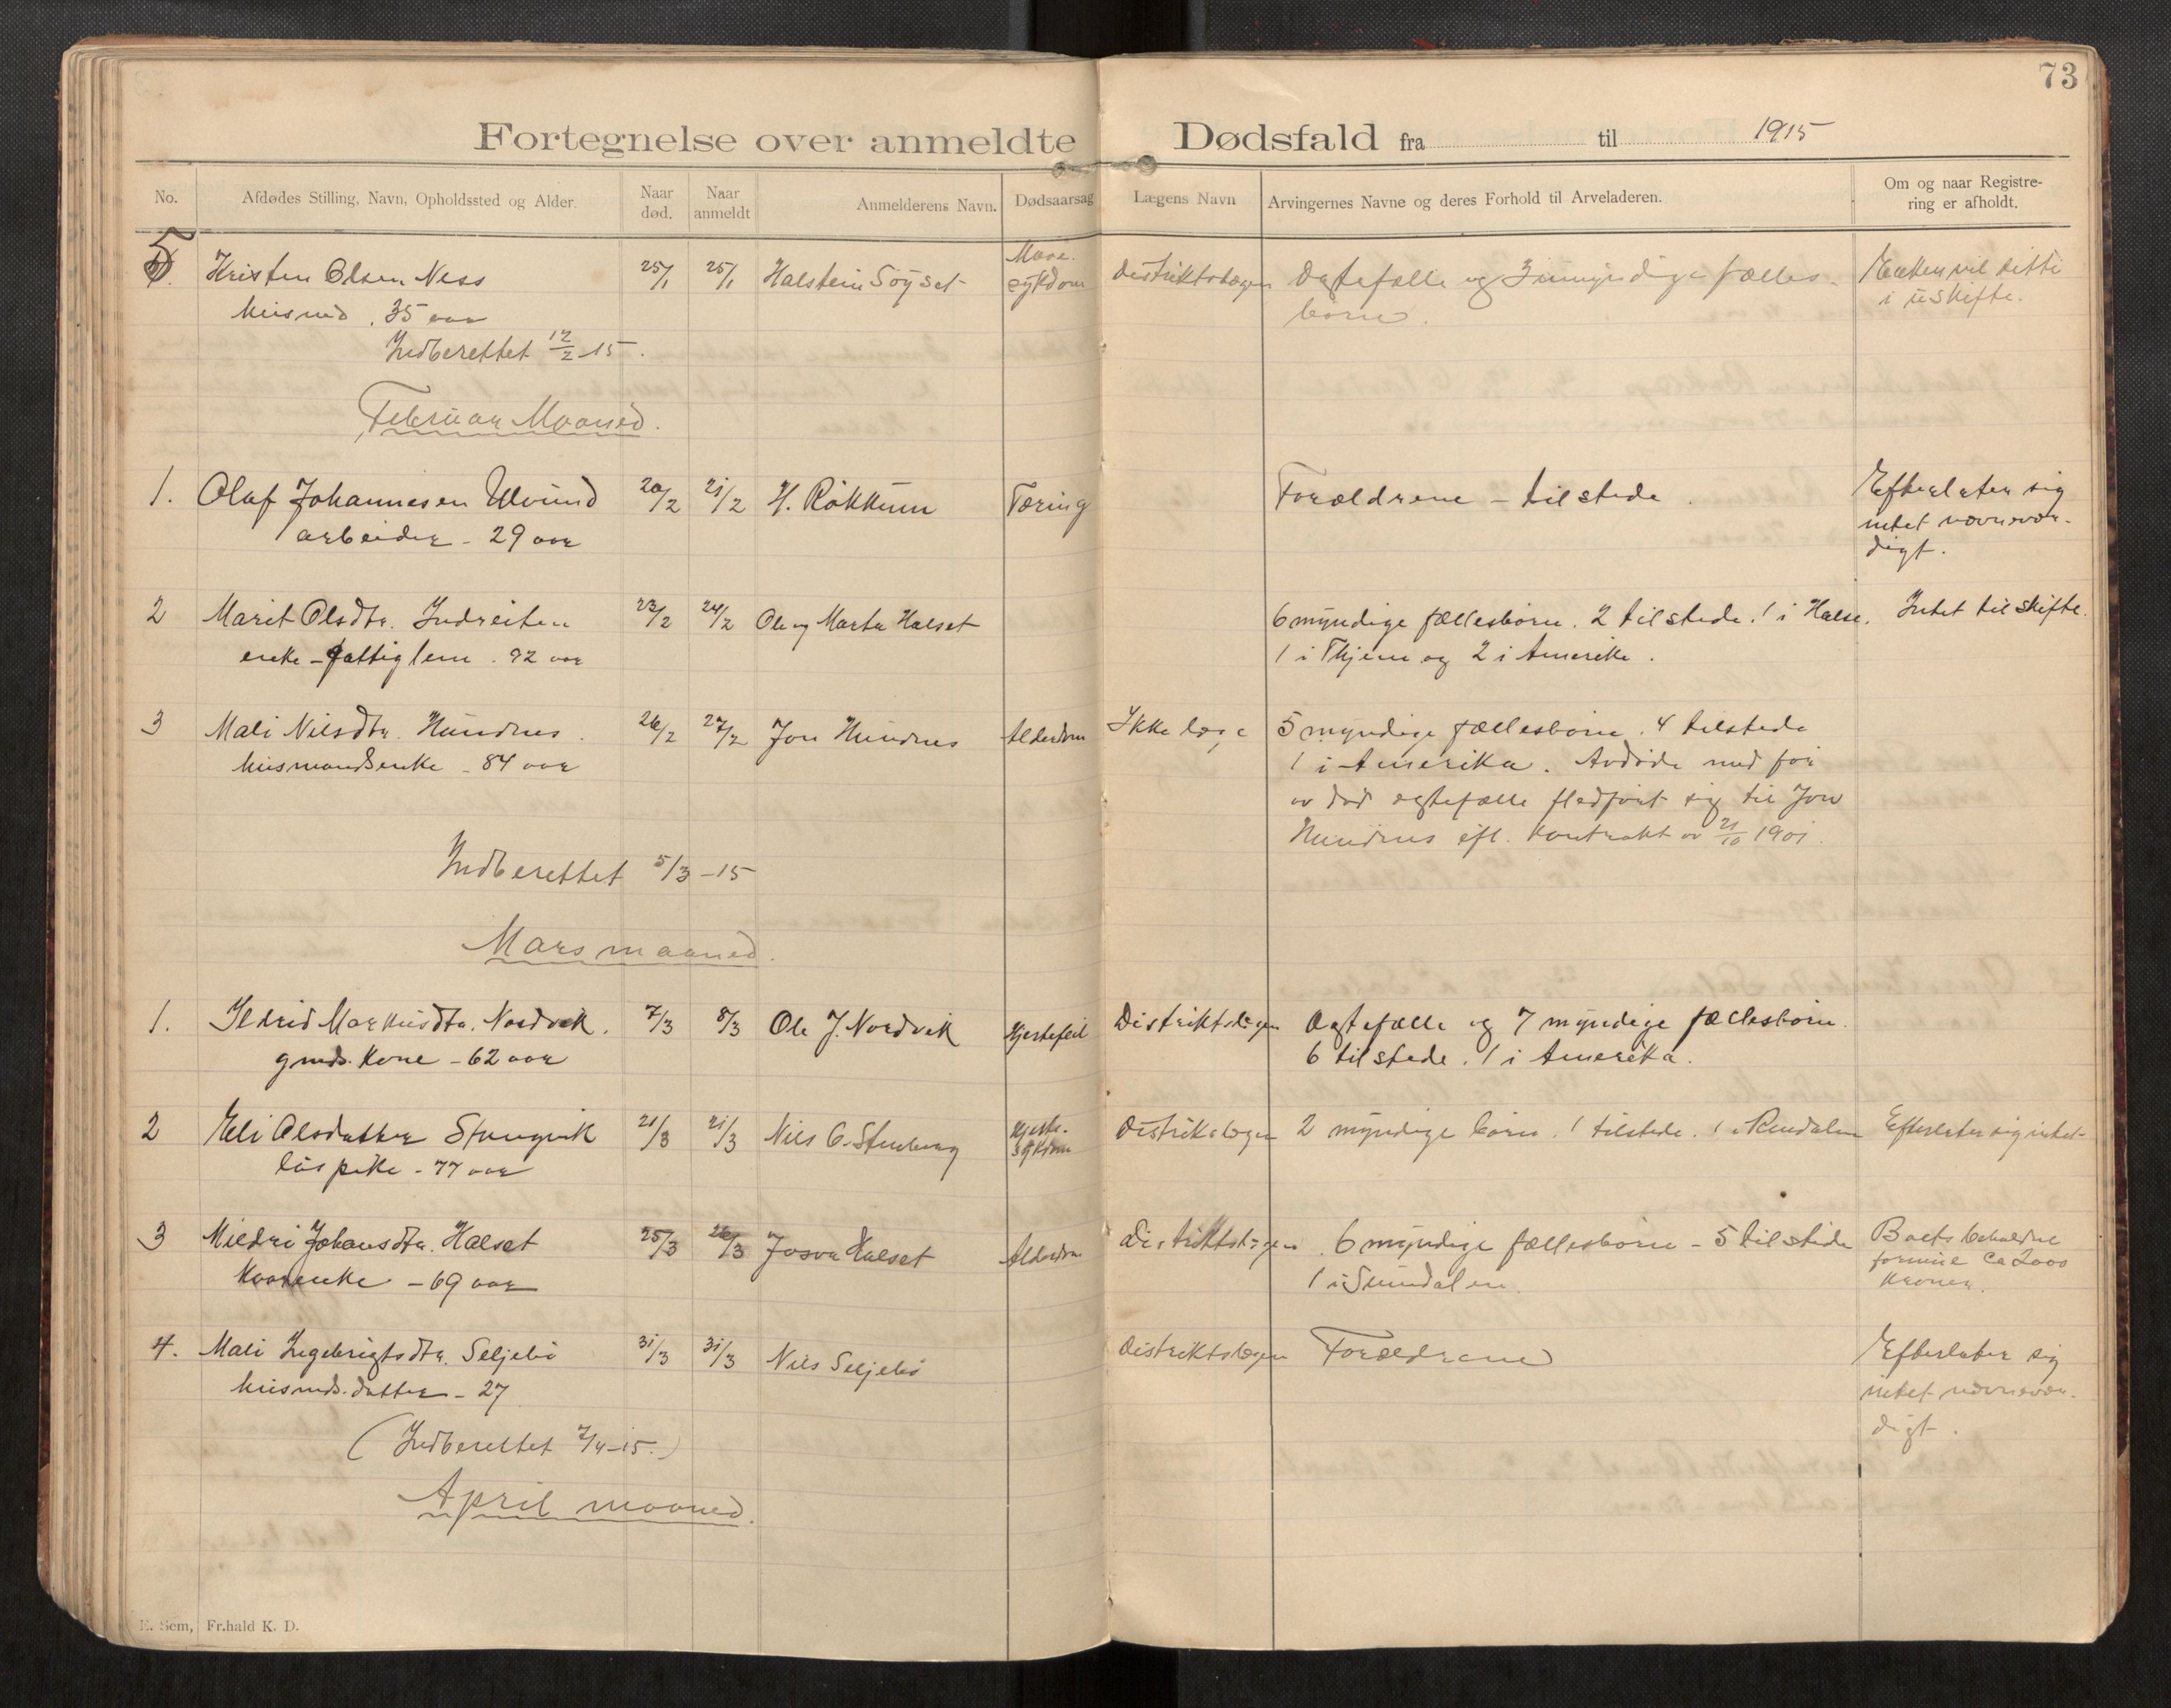 73
Fortegnelse over anmeldte Dødsfald fra til 1915
No. Afdødes Stilling, Navn, Opholdssted og Alder. Naar død. Naar anmeldt Anmelderens Navn. Dødsaarsag Lægens Navn Arvingernes Navne og deres Forhold til Arveladeren. Om og naar Registrering er afholdt.
5 Kristen Olsen Ness 25/1 25/1 Halstein Søyset Mave- Distriktslægen Ægtefælle og umyndige fælles- Enken vil sitte
husmd. 35 aar sykdom børn. i uskifte.
Indberettet 12/2 15.
Februar Maaned.
1. Olaf Johannesen Ulvund 20/2 21/2 H. Røkkum Tæring Forældrene - tilstede. Efterlater sig
arbeider - 29 aar intet nævnevær-
digt.
2 Marit Olsdtr. Indreiten 22/2 24/2 Ole og Marta Halset 6 myndige fællesbørn. 2 tilstede. 1 i Halse. Intet til skifte.
enke - fattiglem. 92 aar 1 i Thjem og 2 i Amerika.
3 Mali Nilsdtr. Hundnes. 26/2 27/2 Jon Hundnes Alderdom Ikke læge 5 myndige fællesbørn. 4 tilstede
husmandsenke - 84 aar 1 i Amerika. Avdøde med før
av død egtefælle fledført sig til Jon
Hundnes efl. kontrakt av 21/10 1901.
Indberettet 5/3 - 15
Mars maaned.
1. Ildrid Markusdtr. Nordvik. 7/3 8/3 Ole J. Nordvik Hjertefeil Distriktslægen Ægtefælle og 7 myndige fællesbørn.
gmds. kone - 62 aar 6 tilstede. 1 i Amerika.
2 Eli Olsdatter Stangvik 21/3 21/3 Nils O. Stenberg Hjerte- Distriktslægen 2 myndige børn 1 tilstede. 1 i Rindalen Efterlater sig intet
løs pike - 77 aar sykdom
3 Mildri Johansdtr. Halset 25/3 26/3 Josva Halset Alderdom Distriktslægen 6 myndige fællesbørn - 5 tilstede Boets beholdne
Kaarenke - 69 aar 1 i Sundalen. formue ca 2000
kroner.
4. Mali Ingebrigtsdtr. Seljebø 31/3 31/3 Nils Seljebø Distriktslægen Forældrene Efterlater sig
husmds. datter - 27 intet nævnevær-
digt.
(Indberettet 7/4-15.)
April maaned.
E. Sem, Fr.hald K. D.